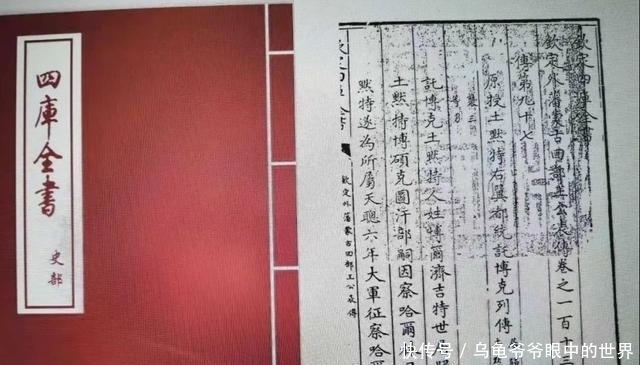 四庫全書
史部
欽定四庫全書
欽定外藩蒙古回部王公表傳卷之一百十三
傳第九十七
原授土黙特右翼都統託博克列傳
託博克土黙特人姓博爾濟吉特世居
土黙特博碩克圖汗部嗣因察哈爾
黙特遂為所屬天聰六年大軍征察哈
欽定四庫全書
欽定外藩蒙古回部王公表傳
快传号／乌龟爷爷眼中的世界